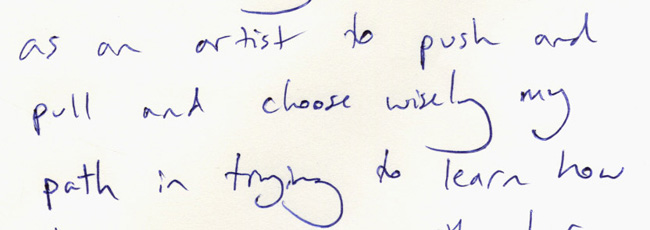 as an artist to push and
pull and choose wisely my
path in trying to learn how